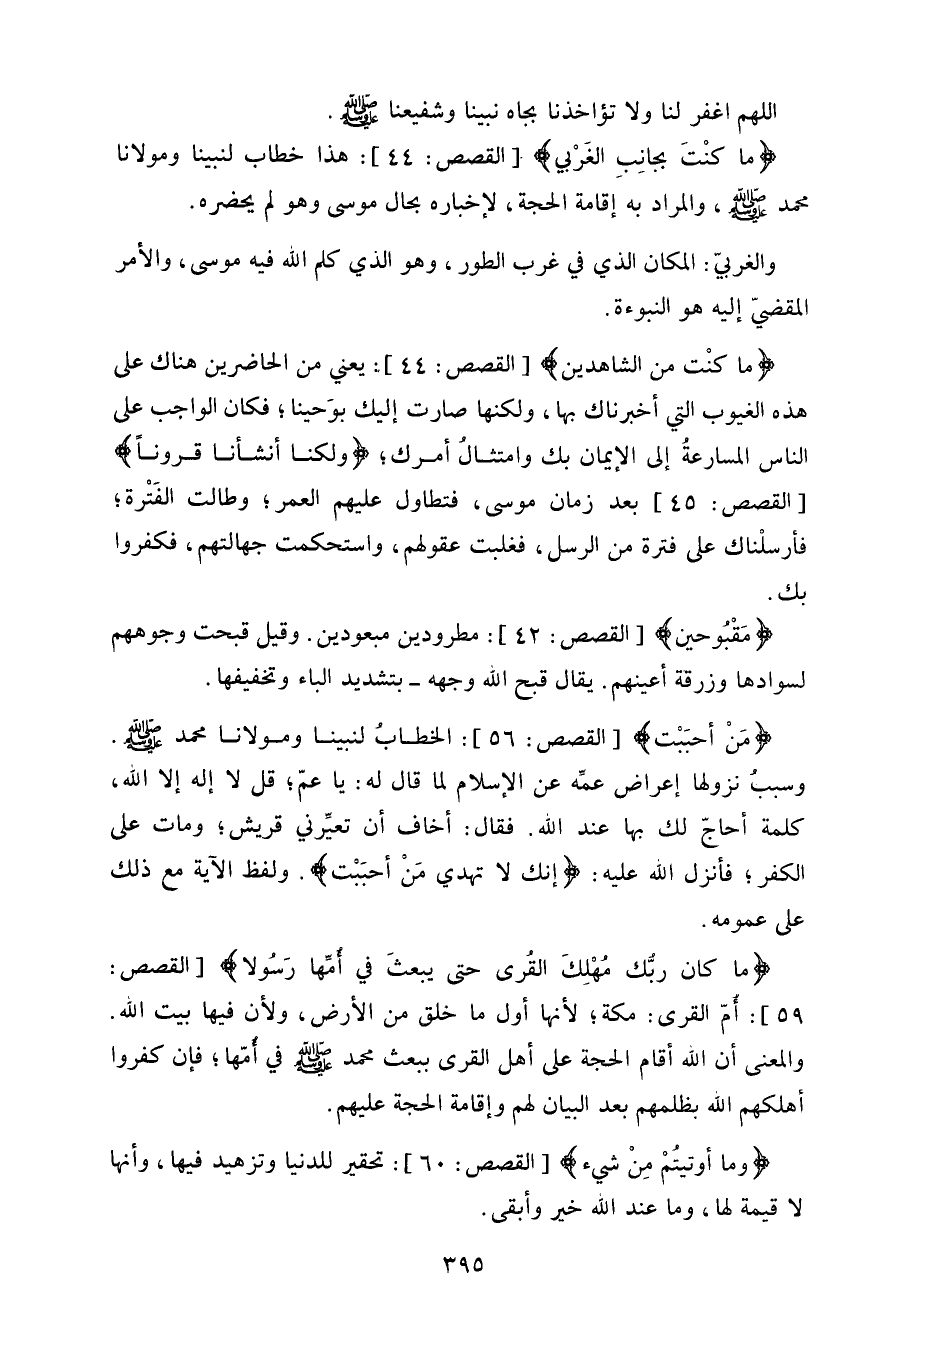 اللهم اغفر لنا ولا تؤاخذنا بجاه نبينا وشفيعنا ﷺ .
﴿ما كنْتَ بجانِبِ الغَرْبي﴾ [القصص: ٤٤]: هذا خطاب لنبينا ومولانا
محمد ﷺ، والمراد به إقامة الحجة، لإخباره بحال موسى وهو لم يحضره.
والغربيّ: المكان الذي في غرب الطور، وهو الذي كلم الله فيه موسى، والأمر
المقضيّ إليه هو النبوءة.
﴿ما كنْت من الشاهدين﴾ [القصص: ٤٤]: يعني من الحاضرين هناك على
هذه الغيوب التي أخبرناك بها، ولكنها صارت إليك بوَحينا؛ فكان الواجب على
الناس المسارعةُ إلى الإيمان بك وامتثالُ أمرك؛ ﴿ولكنا أنشأنا قروناً﴾
[القصص: ٤٥] بعد زمان موسى، فتطاول عليهم العمر؛ وطالت الفَتْرة؛
فأرسلْناك على فترة من الرسل، فغلبت عقولهم، واستحكمت جهالتهم، فكفروا
بك.
﴿مَقْبُوحين﴾ [القصص: ٤٢]: مطرودين مبعودين. وقيل قبحت وجوههم
لسوادها وزرقة أعينهم. يقال قبح الله وجهه ـ بتشديد الباء وتخفيفها.
﴿مَنْ أحبَبْت﴾ [القصص: ٥٦]: الخطابُ لنبينا ومولانا محمد ﷺ .
وسببُ نزولها إعراض عمِّه عن الإسلام لما قال له: يا عمّ؛ قل لا إله إلا الله،
كلمة أحاجّ لك بها عند الله. فقال: أخاف أن تعيِّرني قريش؛ ومات على
الكفر؛ فأنزل الله عليه: ﴿إنك لا تهدي مَنْ أحبَبْت﴾. ولفظ الآية مع ذلك
على عمومه.
﴿ما كان ربُّك مُهْلِكَ القُرى حتى يبعثَ في أُمِّها رَسُولا﴾ [القصص:
٥٩]: أُمّ القرى: مكة؛ لأنها أول ما خلق من الأرض، ولأن فيها بيت الله.
والمعنى أن الله أقام الحجة على أهل القرى ببعث محمد ﷺ في أُمّها؛ فإن كفروا
أهلكهم الله بظلمهم بعد البيان لهم وإقامة الحجة عليهم.
﴿وما أوتيتُمْ مِنْ شيء﴾ [القصص: ٦٠]: تحقير للدنيا وتزهيد فيها، وأنها
لا قيمة لها، وما عند الله خير وأبقى.
٣٩٥